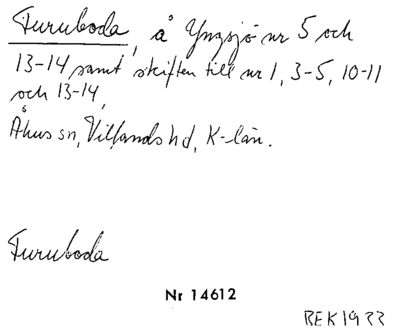 Furuboda, å Yngsjö nr 5 och
13-14 samt skiften till nr 1, 3-5, 10-11
och 13-14,
Åhus sn, Villands hd, K-län.
Furuboda
Nr 14612
BEK1933